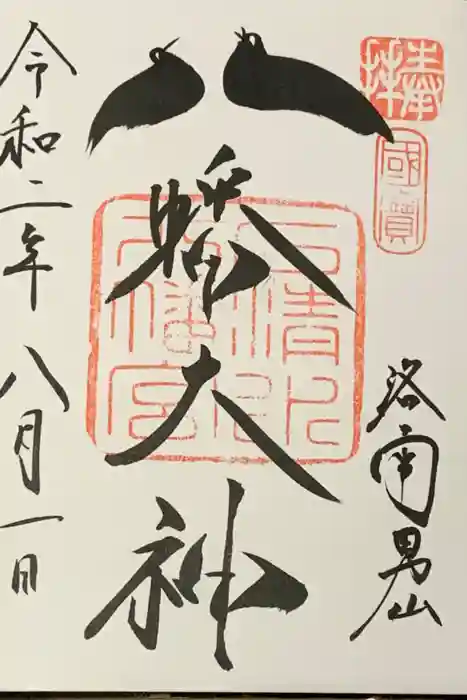 奉拝
國寶
洛南男山
八幡大神
石清水八幡宮
令和二年八月一日